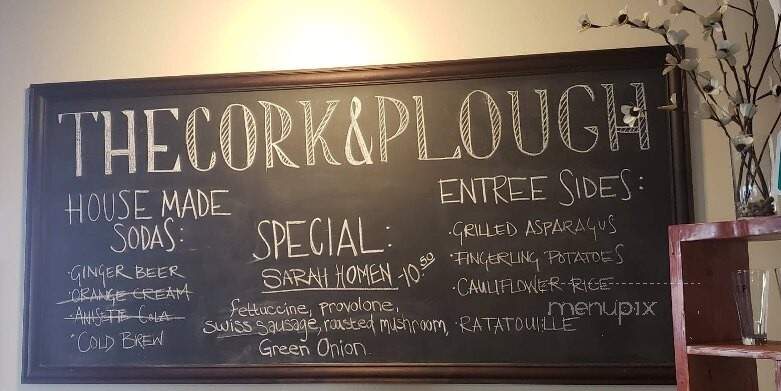 THE CORK & PLOUGH
HOUSE MADE
SODAS:
·GINGER BEER
·ORANGE CREAM
·ANISETTE COLA
·COLD BREW
SPECIAL:
SARAH HOMEN -10.50
fettuccine, provolone,
swiss sausage, roasted mushroom,
Green Onion
ENTREE SIDES:
·GRILLED ASPARAGUS
·FINGERLING POTATOES
·CAULIFLOWER RICE
·RATATOUILLE
menupix